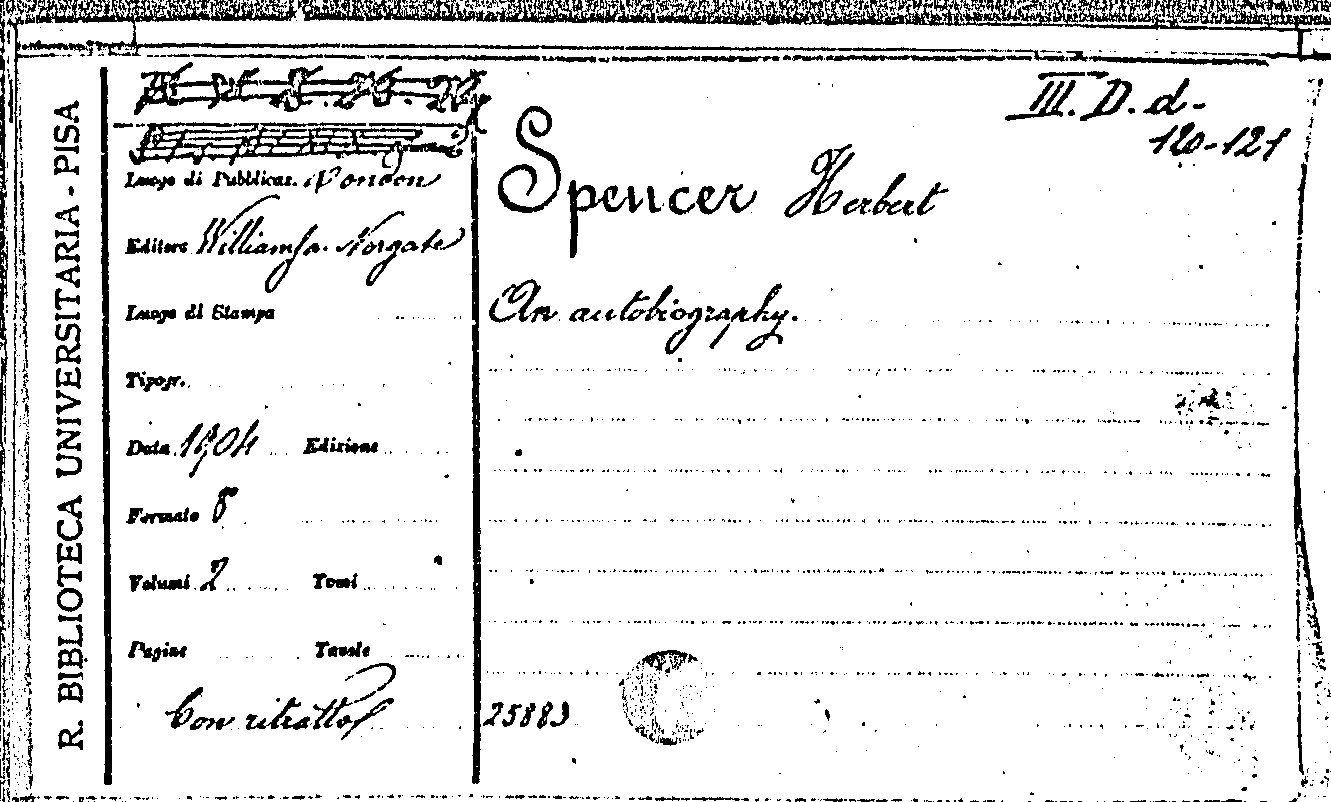 R. BIBLIOTECA UNIVERSITARIA - PISA
III. D. d-
120-121
Luogo di Pubblicaz. London
Spencer Herbert
Editore Williams a. Norgate
Luogo di Stampa
An autobiography.
Tipogr.
Data 1904 Edizione
Formato 8
Volumi 2 Tomi
Pagine Tavole
Con ritratto
25883